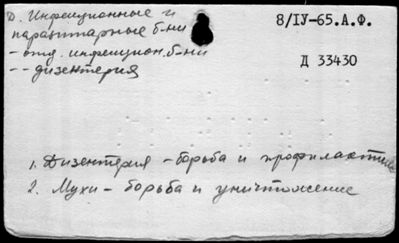 Д. Инфекционные и
паразитарные б-ни
- отд. инфекцион. б-ни
-- дизентерия
8/IУ-65.А.Ф.
Д 33430
1. Дизентерия - борьба и профилактика
2. Мухи - борьба и уничтожение